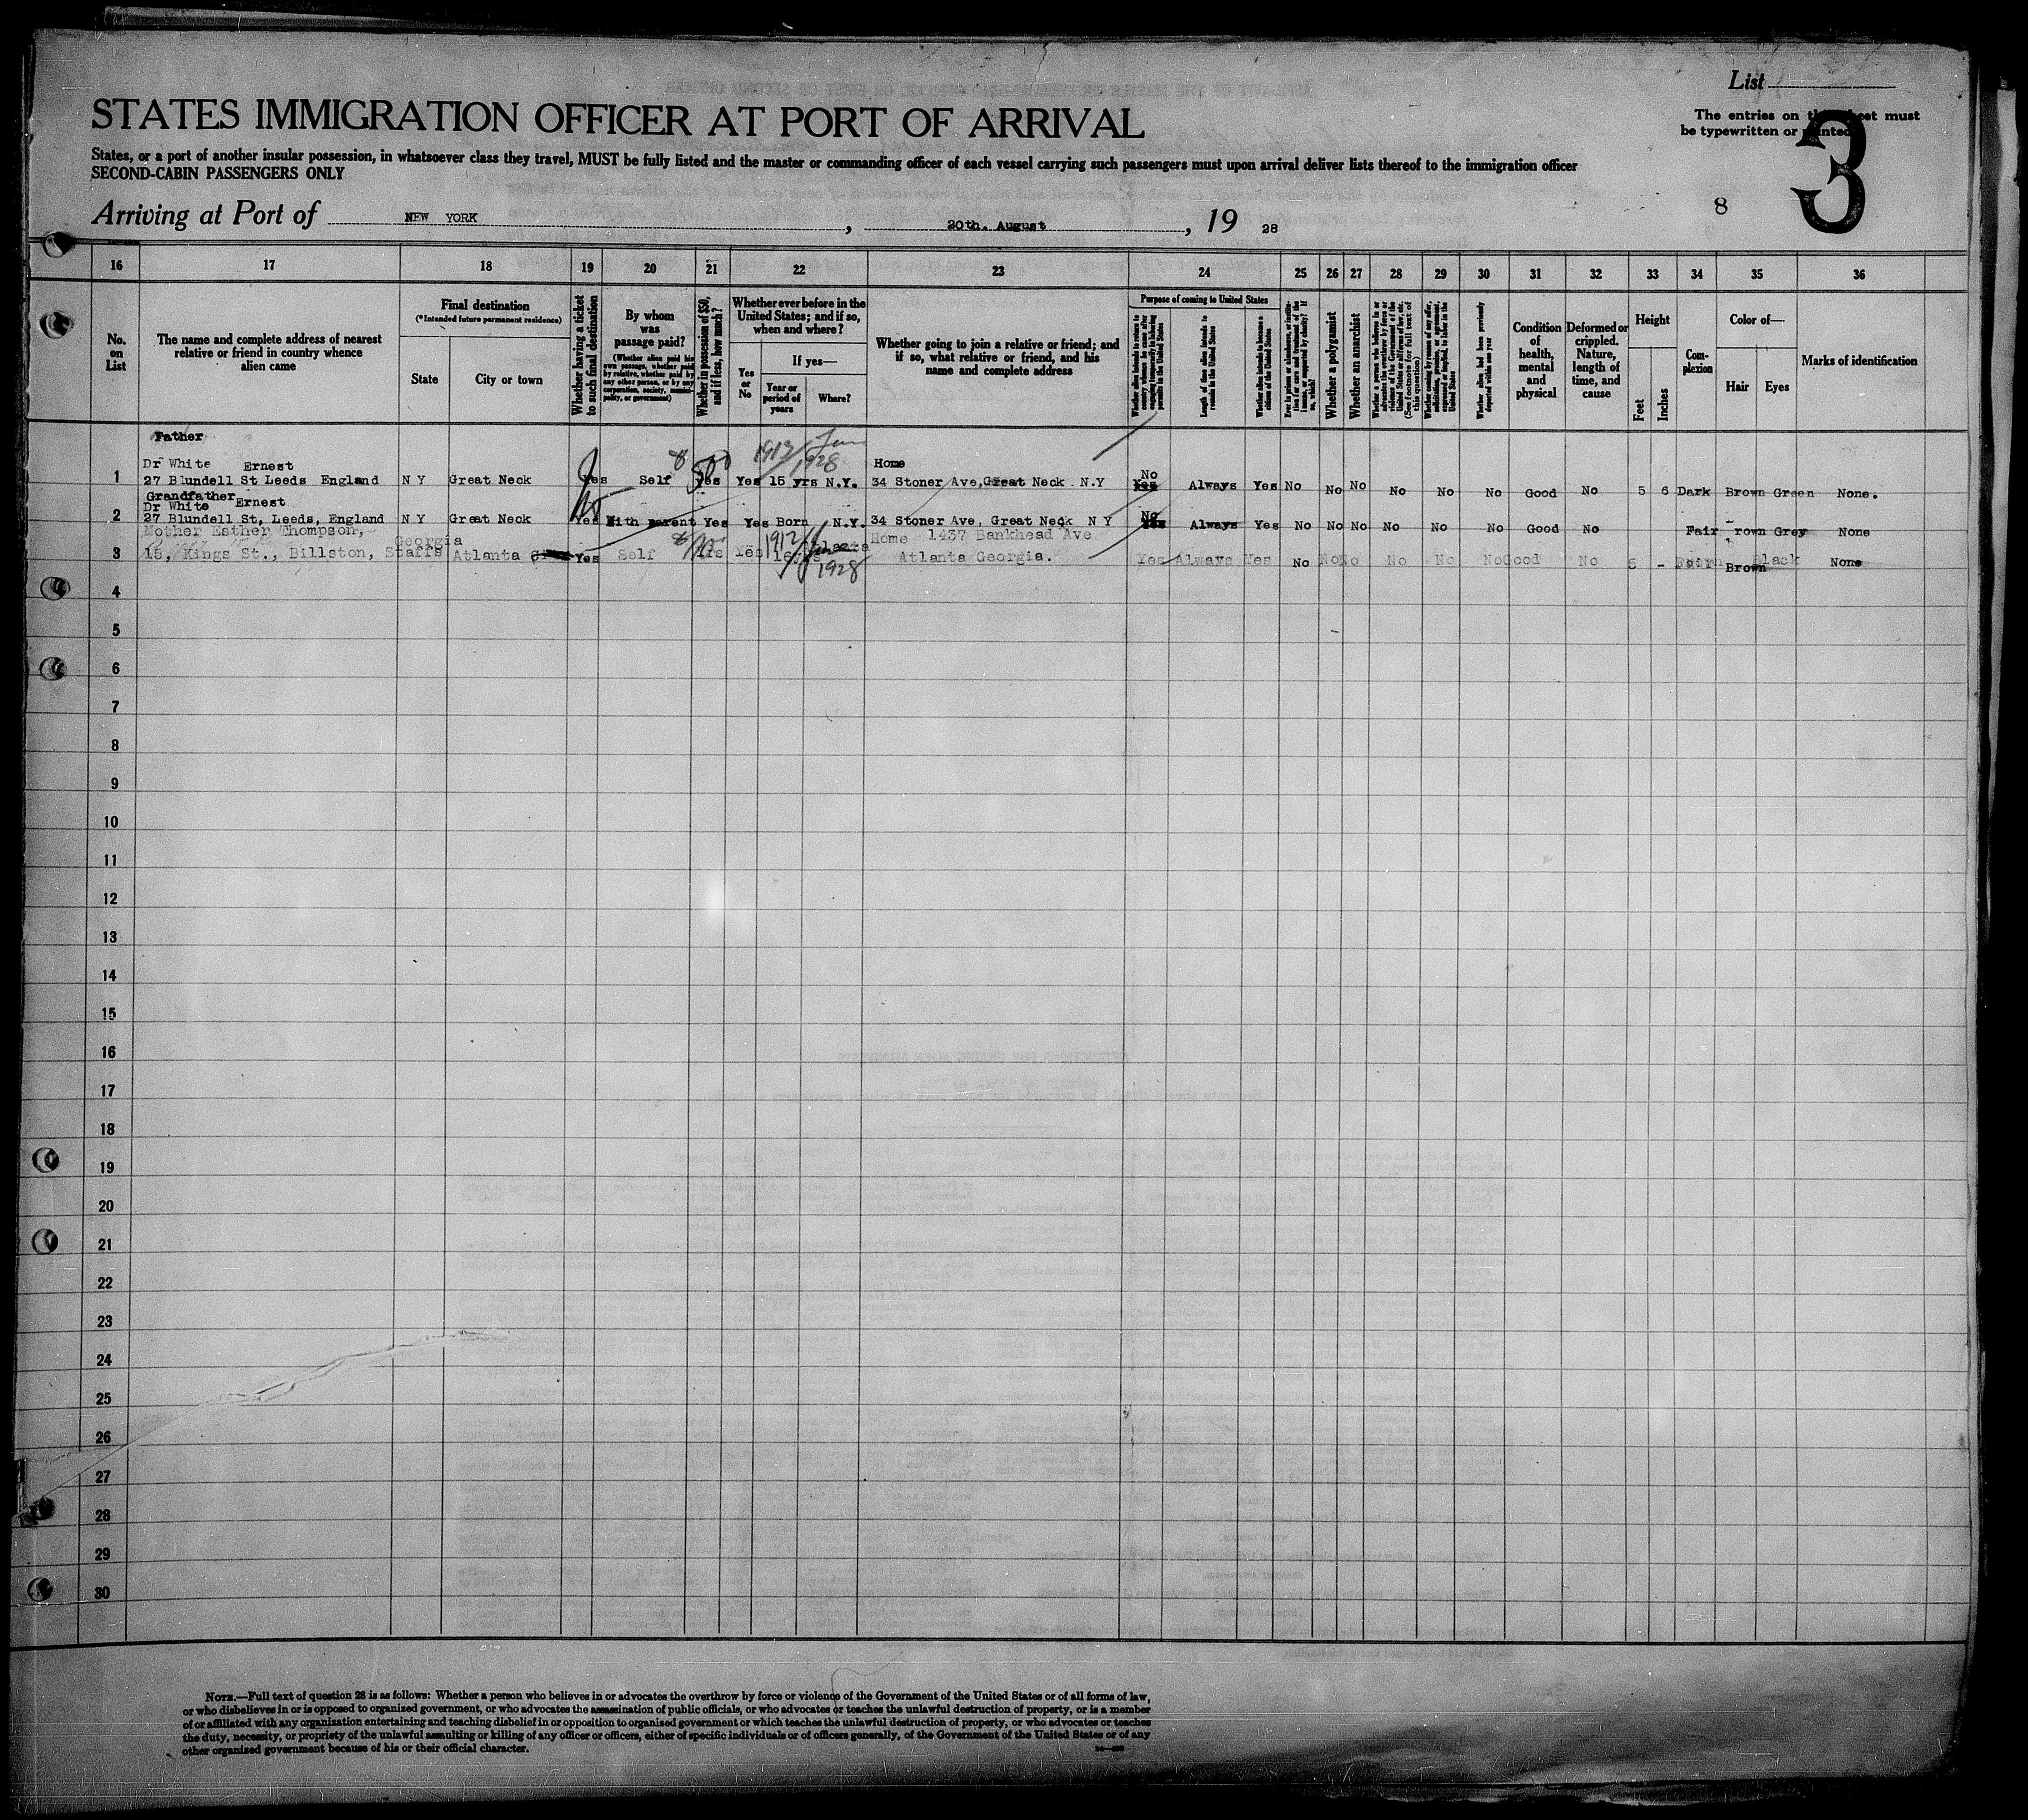 List
The entries on this sheet must
be typewritten or printed
3
STATES IMMIGRATION OFFICER AT PORT OF ARRIVAL
States, or a port of another insular possession, in whatsoever class they travel, MUST be fully listed and the master or commanding officer of each vessel carrying such passengers must upon arrival deliver lists thereof to the immigration officer
SECOND-CABIN PASSENGERS ONLY
8
Arriving at Port of NEW YORK, 20th. August, 19 28
16 17 18 19 20 21 22 23 24 25 26 27 28 29 30 31 32 33 34 35 36
No. on List
The name and complete address of nearest
relative or friend in country whence
alien came
Final destination
(*Intended future permanent residence)
State
City or town
Whether having a ticket
to such final destination
By whom
was
passage paid?
(Whether alien paid his
own passage, whether paid
by relative, whether paid by
any other person, or by any
corporation, society, munici-
pality, or government)
Whether in possession of $50,
and if less, how much?
Whether ever before in the
United States; and if so,
when and where?
Yes
or
No
If yes—
Year or
period of
years
Where?
Whether going to join a relative or friend; and
if so, what relative or friend, and his
name and complete address
Purpose of coming to United States
Length of time alien intends to
remain in the United States
Whether alien intends to become a
citizen of the United States
Whether a polygamist
Whether an anarchist
Whether alien had been previously
deported within one year
Condition
of
health,
mental
and
physical
Deformed or
crippled.
Nature,
length of
time, and
cause
Height
Feet
Inches
Com-
plexion
Color of—
Hair
Eyes
Marks of identification
Father
Dr White Ernest
1 27 Blundell St Leeds England N Y Great Neck Yes Self Yes Yes 15 yrs N.Y. 1913/1928 Home 34 Stoner Ave, Great Neck N.Y No Always Yes No No No No No No Good No 5 6 Dark Brown Green None.
Grandfather
Dr White Ernest
2 27 Blundell St, Leeds, England N Y Great Neck Yes With parent Yes Yes Born N.Y. 34 Stoner Ave, Great Neck N Y No Always Yes No No No No No No Good No Fair rown Grey None
Mother Esther Thompson, Georgia 1912 Home 1437 Bankhead Ave
3 15, Kings St., Billston, Staffs Atlanta Yes Self Yes Yes 1928 Atlanta Georgia. Yes Always Yes No No No No No No Good No 5 - Brown Black None
4
5
6
7
8
9
10
11
12
13
14
15
16
17
18
19
20
21
22
23
24
25
26
27
28
29
30
NOTE.—Full text of question 28 is as follows: Whether a person who believes in or advocates the overthrow by force or violence of the Government of the United States or of all forms of law,
or who disbelieves in or is opposed to organized government, or who advocates the assassination of public officials, or who advocates or teaches the unlawful destruction of property, or is a member
of or affiliated with any organization entertaining and teaching disbelief in or opposition to organized government or which teaches the unlawful destruction of property, or who advocates or teaches
the duty, necessity, or propriety of the unlawful assaulting or killing of any officer or officers, either of specific individuals or of officers generally, of the Government of the United States or of any
other organized government because of his or their official character.